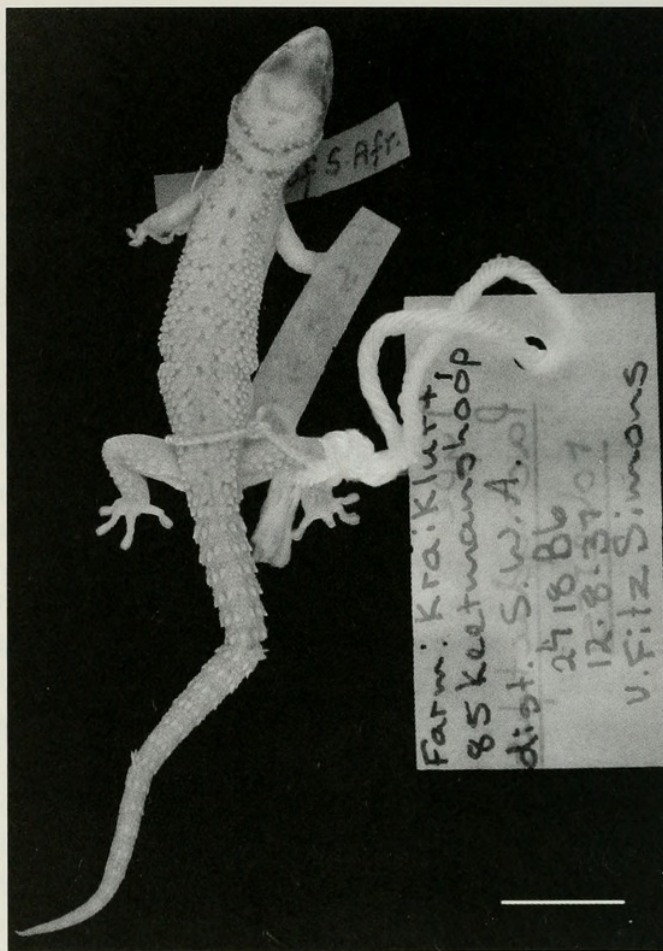 of S. Afr.
Farm: Kraikluft
85 Keetmanshoop
dist. S.W.A.
2718 Bb
12.8.37
V. FitzSimons